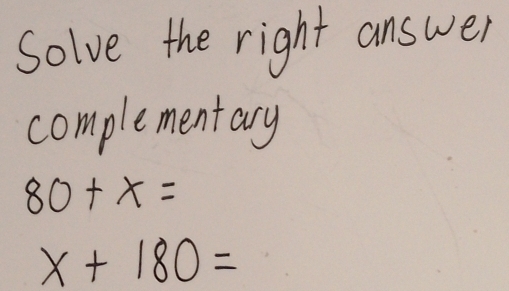 Solve the right answer
complementary
80 + x =
x + 180 =